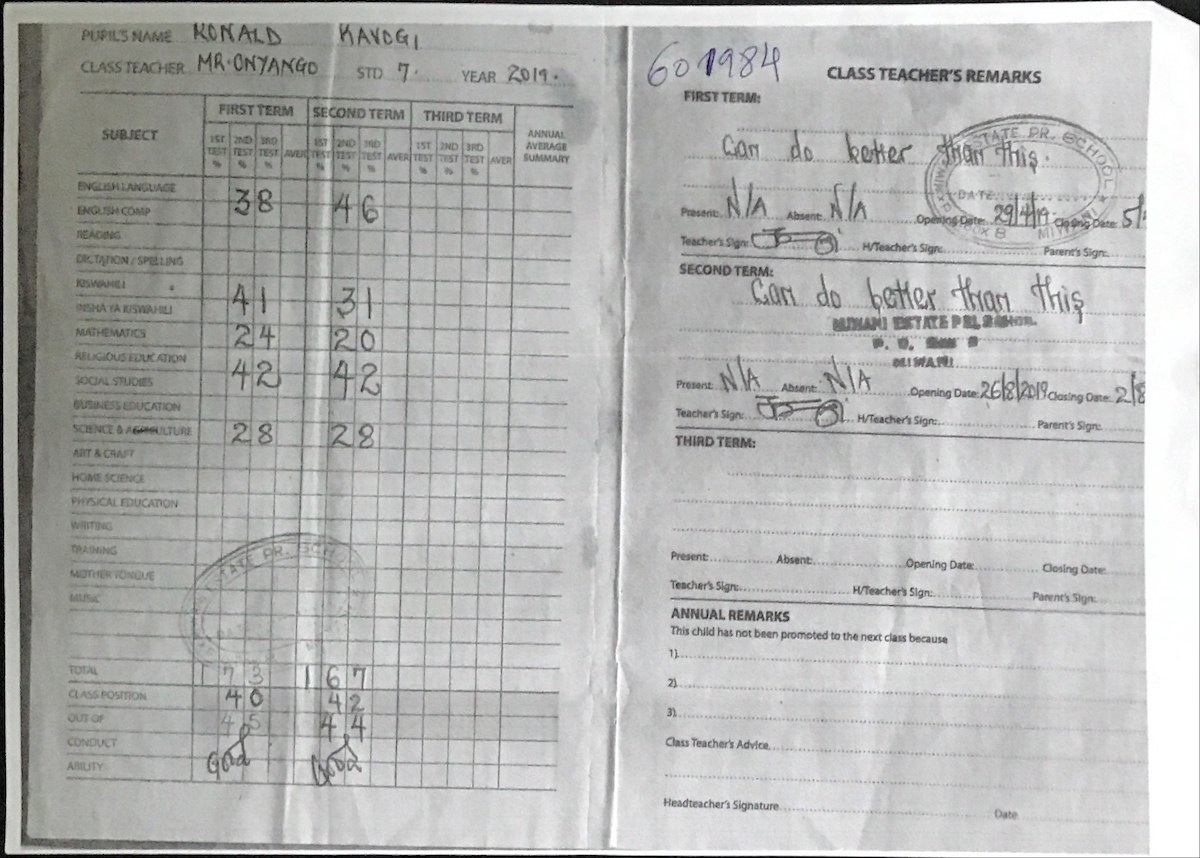 PUPIL'S NAME RONALD KAVOGI
CLASS TEACHER MR. ONYANGO STD 7. YEAR 2019.
SUBJECT FIRST TERM SECOND TERM THIRD TERM ANNUAL AVERAGE SUMMARY
1ST TEST % 2ND TEST % 3RD TEST % AVER 1ST TEST % 2ND TEST % 3RD TEST % AVER 1ST TEST % 2ND TEST % 3RD TEST % AVER
ENGLISH LANGUAGE
ENGLISH COMP 38 46
READING
DICTATION / SPELLING
KISWAHILI
INSHA YA KISWAHILI 41 31
MATHEMATICS 24 20
RELIGIOUS EDUCATION
SOCIAL STUDIES 42 42
BUSINESS EDUCATION
SCIENCE & AGRICULTURE 28 28
ART & CRAFT
HOME SCIENCE
PHYSICAL EDUCATION
WRITING
TRAINING
MOTHER TONGUE
MUSIC
TATE PR. SCHO
TOTAL 173 167
CLASS POSITION 40 42
OUT OF 45 44
CONDUCT Good Good
ABILITY
601984
CLASS TEACHER'S REMARKS
FIRST TERM:
Can do better than this.
STATE PR. SCHOOL
DATE
BOX 8
Present: N/A Absent: N/A Opening Date: 29/4/19 Closing Date: 5/
Teacher's Sign: H/Teacher's Sign: Parent's Sign:
SECOND TERM:
Can do better than this
ESTATE PRI. SCHOOL
MIWANI
Present: N/A Absent: N/A Opening Date: 26/8/2019 Closing Date: 2/8
Teacher's Sign: H/Teacher's Sign: Parent's Sign:
THIRD TERM:
Present: Absent: Opening Date: Closing Date:
Teacher's Sign: H/Teacher's Sign: Parent's Sign:
ANNUAL REMARKS
This child has not been promoted to the next class because
1)
2)
3)
Class Teacher's Advice
Headteacher's Signature Date